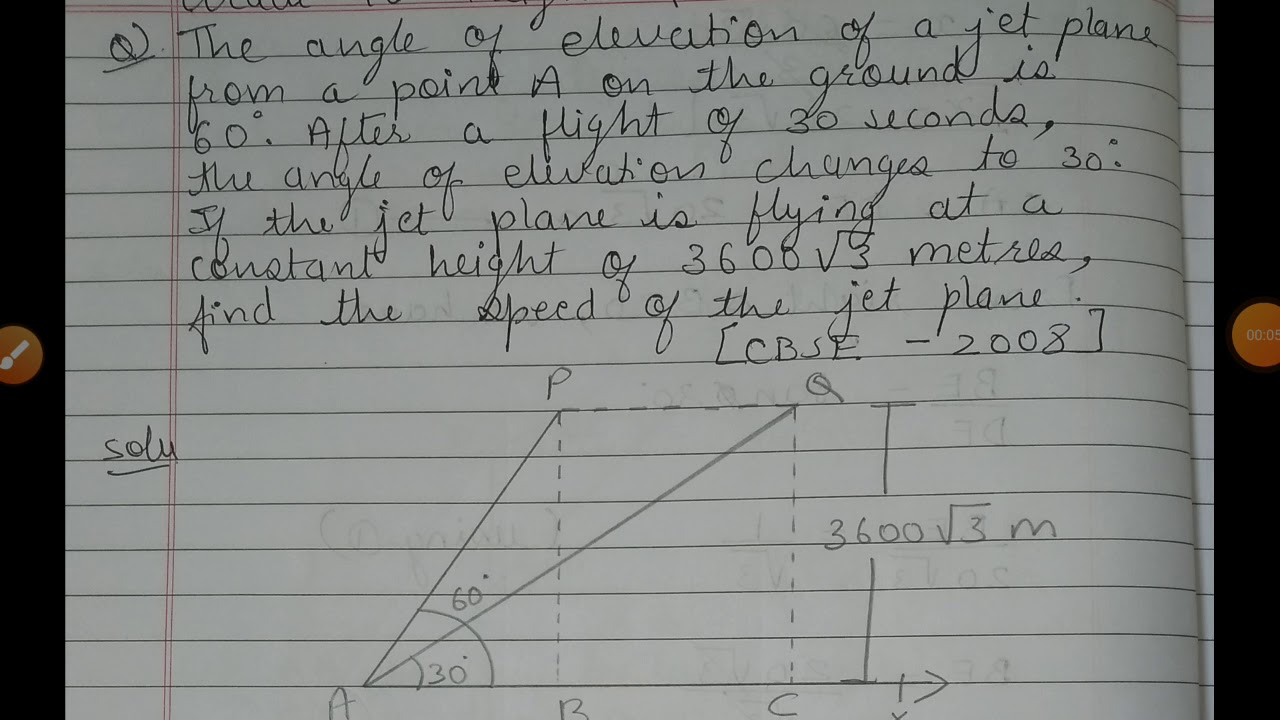 Q). The angle of elevation of a jet plane
from a point A on the ground is
60°. After a flight of 30 seconds,
the angle of elevation changes to 30°.
If the jet plane is flying at a
constant height of 3600√3 metres,
find the speed of the jet plane.
[CBSE - 2008]
P Q
soln
3600√3 m
60°
30°
A B C x
00:05